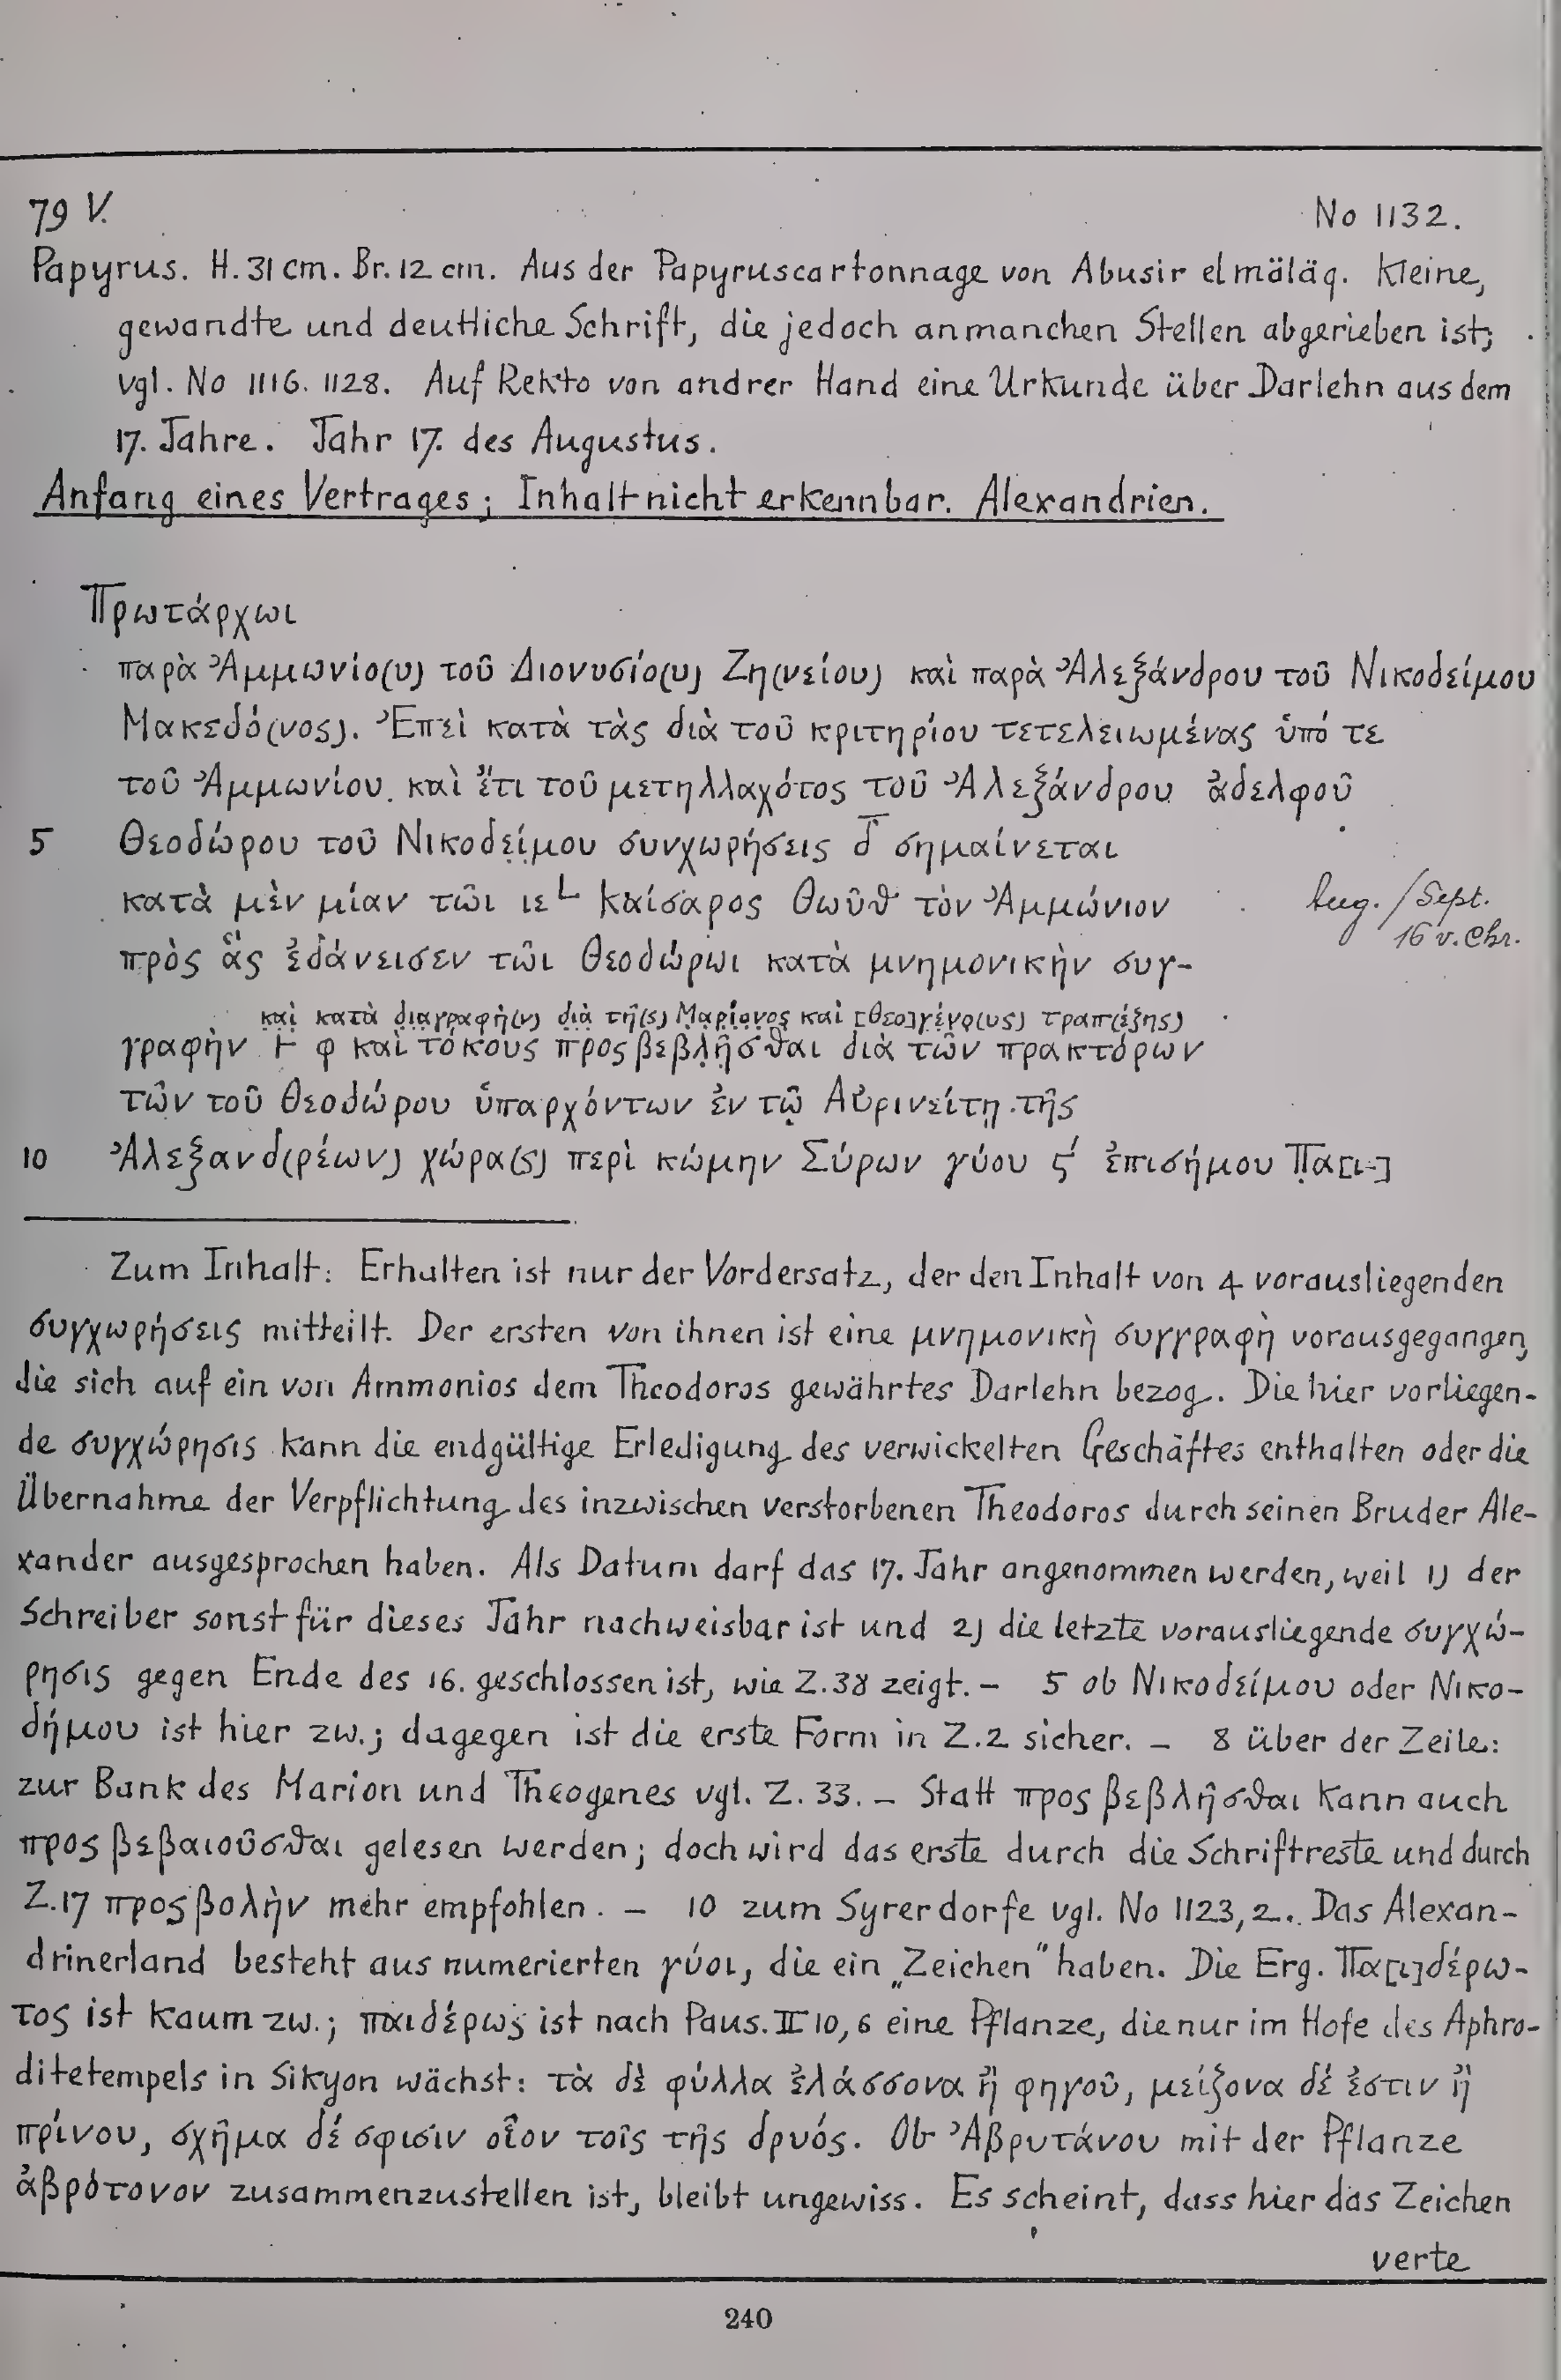 79 V. No 1132.
Papyrus. H. 31 cm. Br. 12 cm. Aus der Papyruscartonnage von Abusir el mäläq. Kleine,
gewandte und deutliche Schrift, die jedoch an manchen Stellen abgerieben ist;
vgl. No 1116. 1128. Auf Rekto von andrer Hand eine Urkunde über Darlehn aus dem
17. Jahre. Jahr 17. des Augustus.
Anfang eines Vertrages; Inhalt nicht erkennbar. Alexandrien.
Πρωτάρχωι
παρὰ Ἀμμωνίο(υ) τοῦ Διονυσίο(υ) Ζη(νείου) καὶ παρὰ Ἀλεξάνδρου τοῦ Νικοδείμου
Μακεδό(νος). Ἐπεὶ κατὰ τὰς διὰ τοῦ κριτηρίου τετελειωμένας ὑπό τε
τοῦ Ἀμμωνίου καὶ ἔτι τοῦ μετηλλαχότος τοῦ Ἀλεξάνδρου ἀδελφοῦ
5 Θεοδώρου τοῦ Νικοδε̣ί̣μου συνχωρήσεις δ̅ σημαίνεται
κατὰ μὲν μίαν τῶι ιε L Καίσαρος Θωῦθ τὸν Ἀμμώνιον
Aug./Sept.
16 v. Chr.
πρὸς ἃς ἐδάνεισεν τῶι Θεοδώρωι κατὰ μνημονικὴν συγ-
κα̣ὶ̣ κατὰ δ̣ι̣α̣γραφὴ(ν) δ̣ι̣ὰ̣ τῆ(ς) Μ̣α̣ρ̣ί̣ο̣ν̣ο̣ς καὶ [Θεο]γένο(υς) τραπ(έζης)
γραφὴν 𐅂 φ καὶ τόκους προσβεβλ̣ῆ̣σθαι διὰ τῶν πρακτόρων
τῶν τοῦ Θεοδώρου ὑπαρχόντων ἐν τῷ Αὐρινείτῃ τῆς
10 Ἀλεξανδ(ρέων) χώρα(ς) περὶ κώμην Σύρων γύου ϛ́ ἐπισήμου Π̣α[ι-]
Zum Inhalt: Erhalten ist nur der Vordersatz, der den Inhalt von 4 vorausliegenden
συγχωρήσεις mitteilt. Der ersten von ihnen ist eine μνημονικὴ συγγραφὴ vorausgegangen,
die sich auf ein von Ammonios dem Theodoros gewährtes Darlehn bezog. Die hier vorliegen-
de συγχώρησις kann die endgültige Erledigung des verwickelten Geschäftes enthalten oder die
Übernahme der Verpflichtung des inzwischen verstorbenen Theodoros durch seinen Bruder Ale-
xander ausgesprochen haben. Als Datum darf das 17. Jahr angenommen werden, weil 1) der
Schreiber sonst für dieses Jahr nachweisbar ist und 2) die letzte vorausliegende συγχώ-
ρησις gegen Ende des 16. geschlossen ist, wie Z. 38 zeigt. – 5 ob Νικοδείμου oder Νικο-
δήμου ist hier zw.; dagegen ist die erste Form in Z. 2 sicher. – 8 über der Zeile:
zur Bank des Marion und Theogenes vgl. Z. 33. – Statt προσβεβλῆσθαι kann auch
προσβεβαιοῦσθαι gelesen werden; doch wird das erste durch die Schriftreste und durch
Z. 17 προσβολὴν mehr empfohlen. – 10 zum Syrerdorfe vgl. No 1123, 2. Das Alexan-
drinerland besteht aus numerierten γύοι, die ein „Zeichen" haben. Die Erg. Πα[ι]δέρω-
τος ist kaum zw.; παιδέρως ist nach Paus. II 10, 6 eine Pflanze, die nur im Hofe des Aphro-
ditetempels in Sikyon wächst: τὰ δὲ φύλλα ἐλάσσονα ἢ φηγοῦ, μείζονα δέ ἐστιν ἢ
πρίνου, σχῆμα δέ σφισιν οἷον τοῖς τῆς δρυός. Ob Ἀβρυτάνου mit der Pflanze
ἀβρότονον zusammenzustellen ist, bleibt ungewiss. Es scheint, dass hier das Zeichen
verte
240